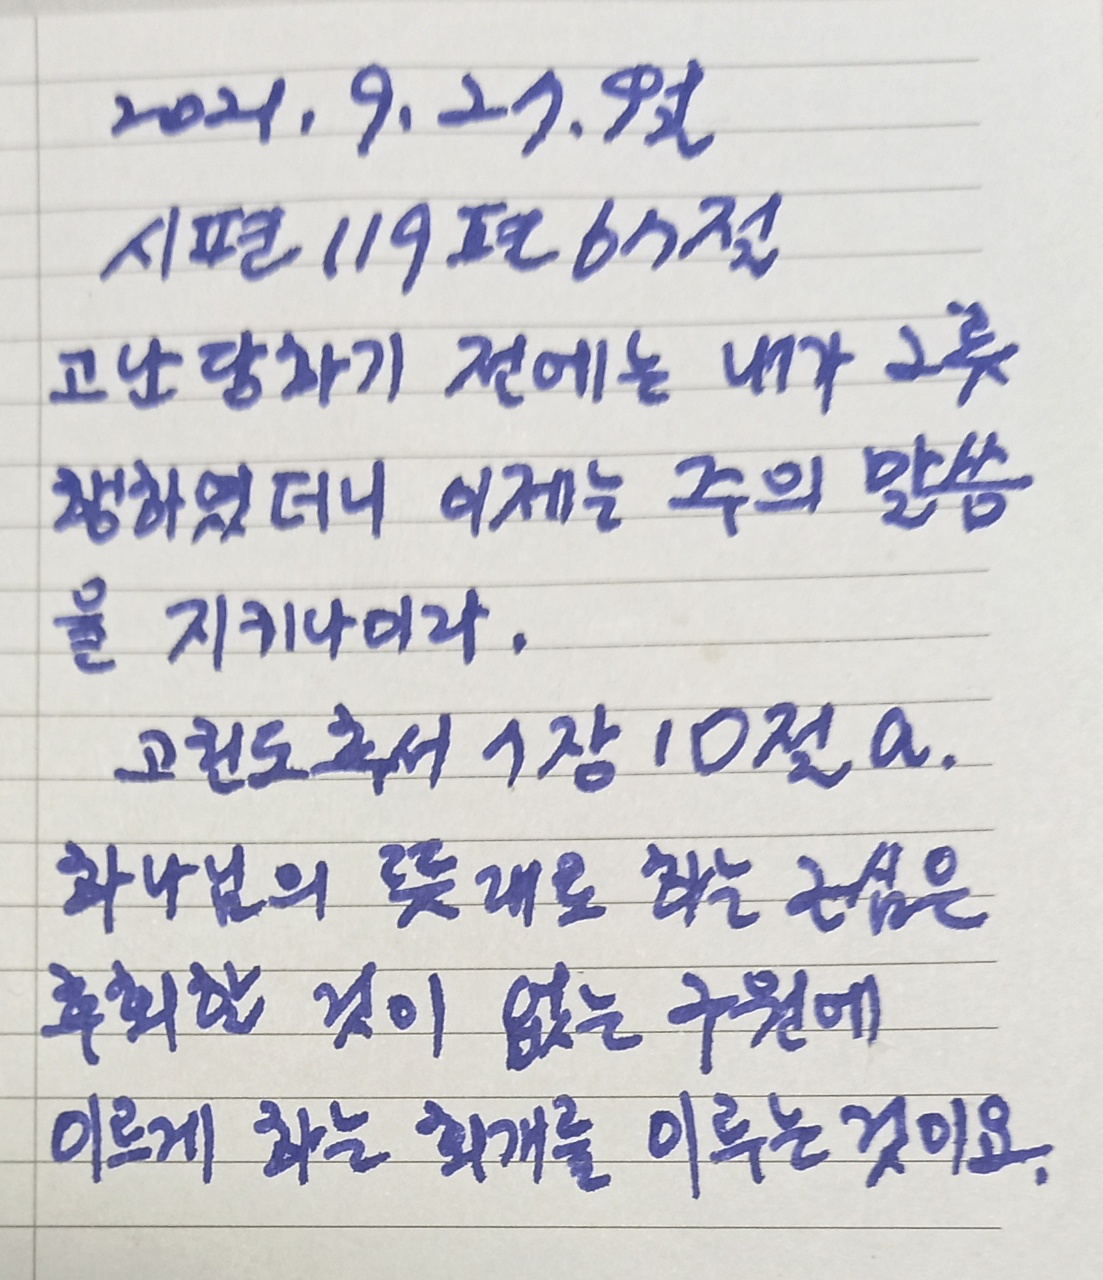 2021. 9. 27. 월
시편 119편 67절
고난 당하기 전에는 내가 그릇
행하였더니 이제는 주의 말씀
을 지키나이다.
고린도후서 7장 10절 a.
하나님의 뜻대로 하는 근심은
후회할 것이 없는 구원에
이르게 하는 회개를 이루는 것이요.